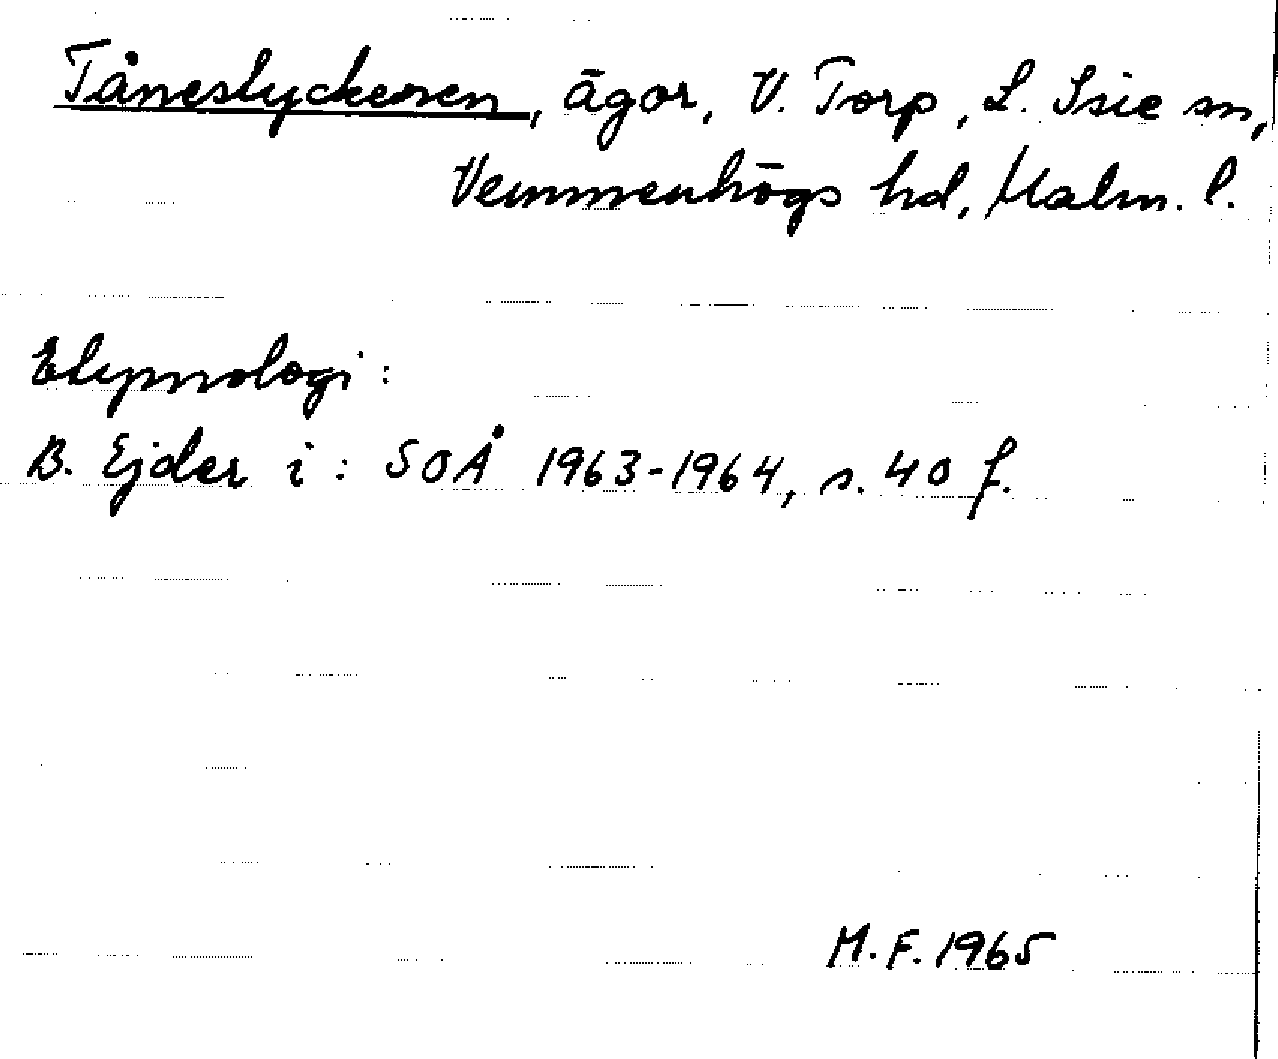 Tånestyckenen, ägor, V. Torp, L. Isie sn,
Vemmenhögs hd, Malm. l.
Etymologi:
B. Ejder i: SOÅ 1963-1964, s. 40 f.
M.F. 1965